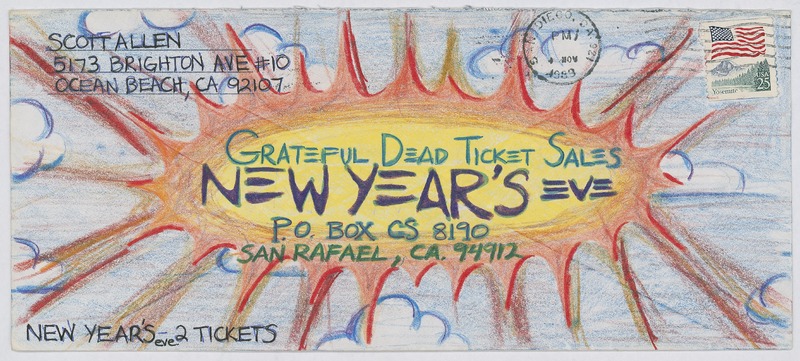 SCOTT ALLEN
5173 BRIGHTON AVE #10
OCEAN BEACH, CA 92107
SAN DIEGO, CA 921
PM
NOV
1989
USA
25
Yosemite
GRATEFUL DEAD TICKET SALES
NEW YEAR'S EVE
P.O. BOX CS 8190
SAN RAFAEL, CA. 94912
NEW YEAR'S eve - 2 TICKETS